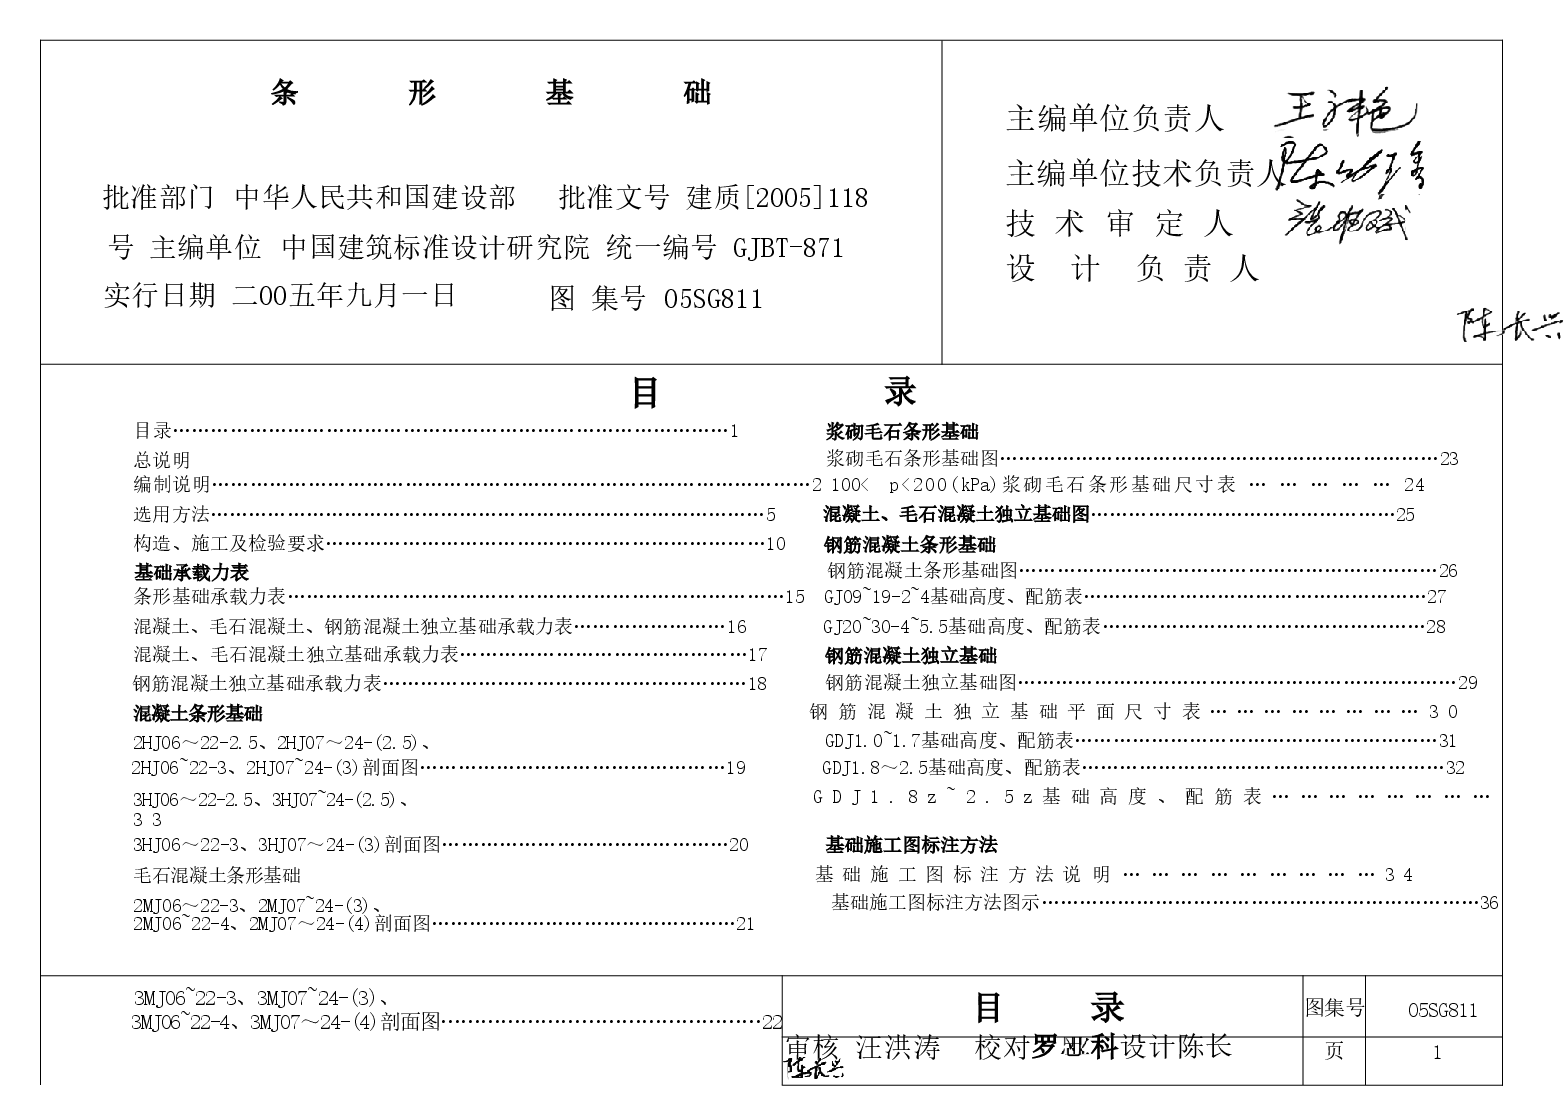 条 形 基 础
批准部门 中华人民共和国建设部 批准文号 建质[2005]118
号 主编单位 中国建筑标准设计研究院 统一编号 GJBT-871
实行日期 二00五年九月一日 图 集号 05SG811
主编单位负责人
主编单位技术负责人
技 术 审 定 人
设 计 负 责 人
陈长兴
目 录
目录……………………………………………………………………………1
总说明
编制说明…………………………………………………………………………………2
选用方法……………………………………………………………………………5
构造、施工及检验要求……………………………………………………………10
基础承载力表
条形基础承载力表……………………………………………………………………15
混凝土、毛石混凝土、钢筋混凝土独立基础承载力表……………………16
混凝土、毛石混凝土独立基础承载力表………………………………………17
钢筋混凝土独立基础承载力表…………………………………………………18
混凝土条形基础
2HJ06～22-2.5、2HJ07～24-(2.5)、
2HJ06~22-3、2HJ07~24-(3)剖面图…………………………………………19
3HJ06～22-2.5、3HJ07~24-(2.5)、
3 3
3HJ06～22-3、3HJ07～24-(3)剖面图………………………………………20
毛石混凝土条形基础
2MJ06～22-3、2MJ07~24-(3)、
2MJ06~22-4、2MJ07～24-(4)剖面图…………………………………………21
3MJ06~22-3、3MJ07~24-(3)、
3MJ06~22-4、3MJ07～24-(4)剖面图……………………………………………22
浆砌毛石条形基础
浆砌毛石条形基础图……………………………………………………………23
100< p<200(kPa)浆砌毛石条形基础尺寸表 … … … … … 24
混凝土、毛石混凝土独立基础图…………………………………………25
钢筋混凝土条形基础
钢筋混凝土条形基础图…………………………………………………………26
GJ09~19-2~4基础高度、配筋表………………………………………………27
GJ20~30-4~5.5基础高度、配筋表……………………………………………28
钢筋混凝土独立基础
钢筋混凝土独立基础图……………………………………………………………29
钢 筋 混 凝 土 独 立 基 础 平 面 尺 寸 表 … … … … … … … … 3 0
GDJ1.0~1.7基础高度、配筋表…………………………………………………31
GDJ1.8～2.5基础高度、配筋表…………………………………………………32
G D J 1 . 8 z ~ 2 . 5 z 基 础 高 度 、 配 筋 表 … … … … … … … …
基础施工图标注方法
基 础 施 工 图 标 注 方 法 说 明 … … … … … … … … … 3 4
基础施工图标注方法图示……………………………………………………………36
目 录
图集号 05SG811
审核 汪洪涛 校对罗 科设计陈长
陈长兴
页 1